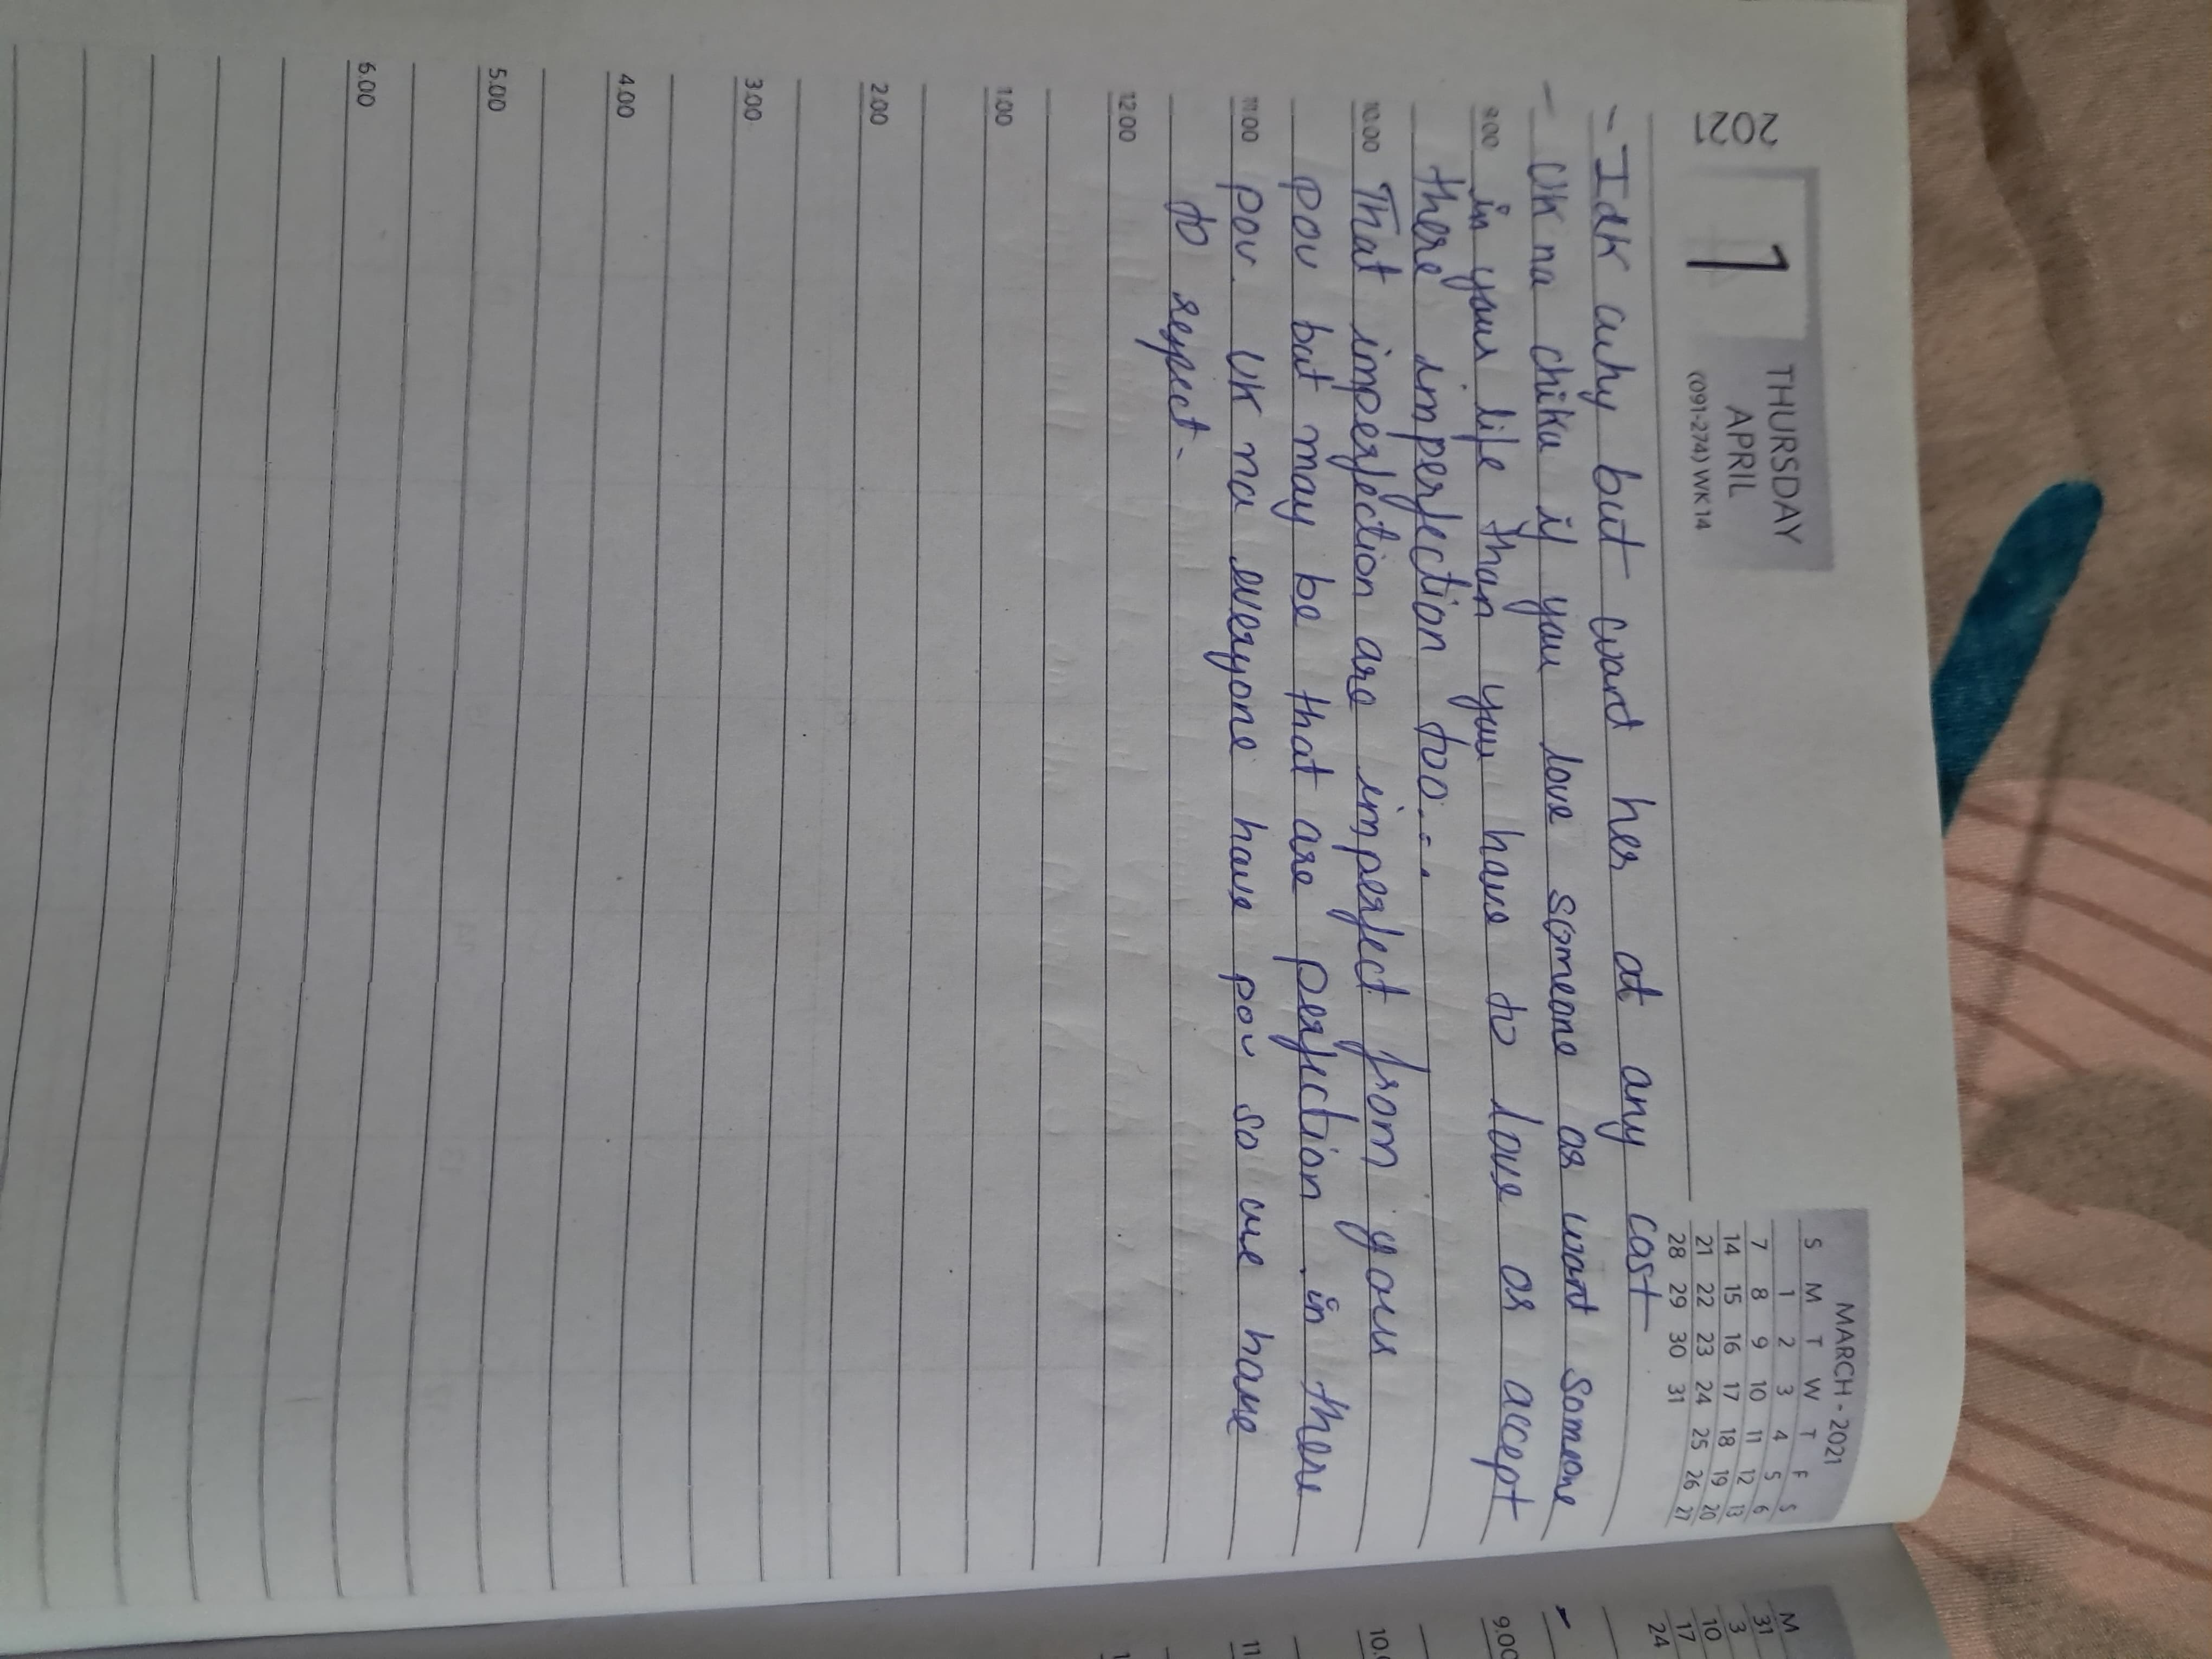 2021
1
THURSDAY
APRIL
(091-274) WK 14
MARCH - 2021
S M T W T F S
1 2 3 4 5 6
7 8 9 10 11 12 13
14 15 16 17 18 19 20
21 22 23 24 25 26 27
28 29 30 31
- Idk why but want her at any cost
- UK na chiku if you love someone as want someone
9.00 in your life than you have to love or accept
there imperfection too....
10.00 That imperfection are imperfect from your
pov but may be that are perfection in there
11.00 pov. UK na everyone have pov so we have
to respect.
12.00
1.00
2.00
3.00
4.00
5.00
6.00
M
31
3
10
17
24
9.00
10.
11